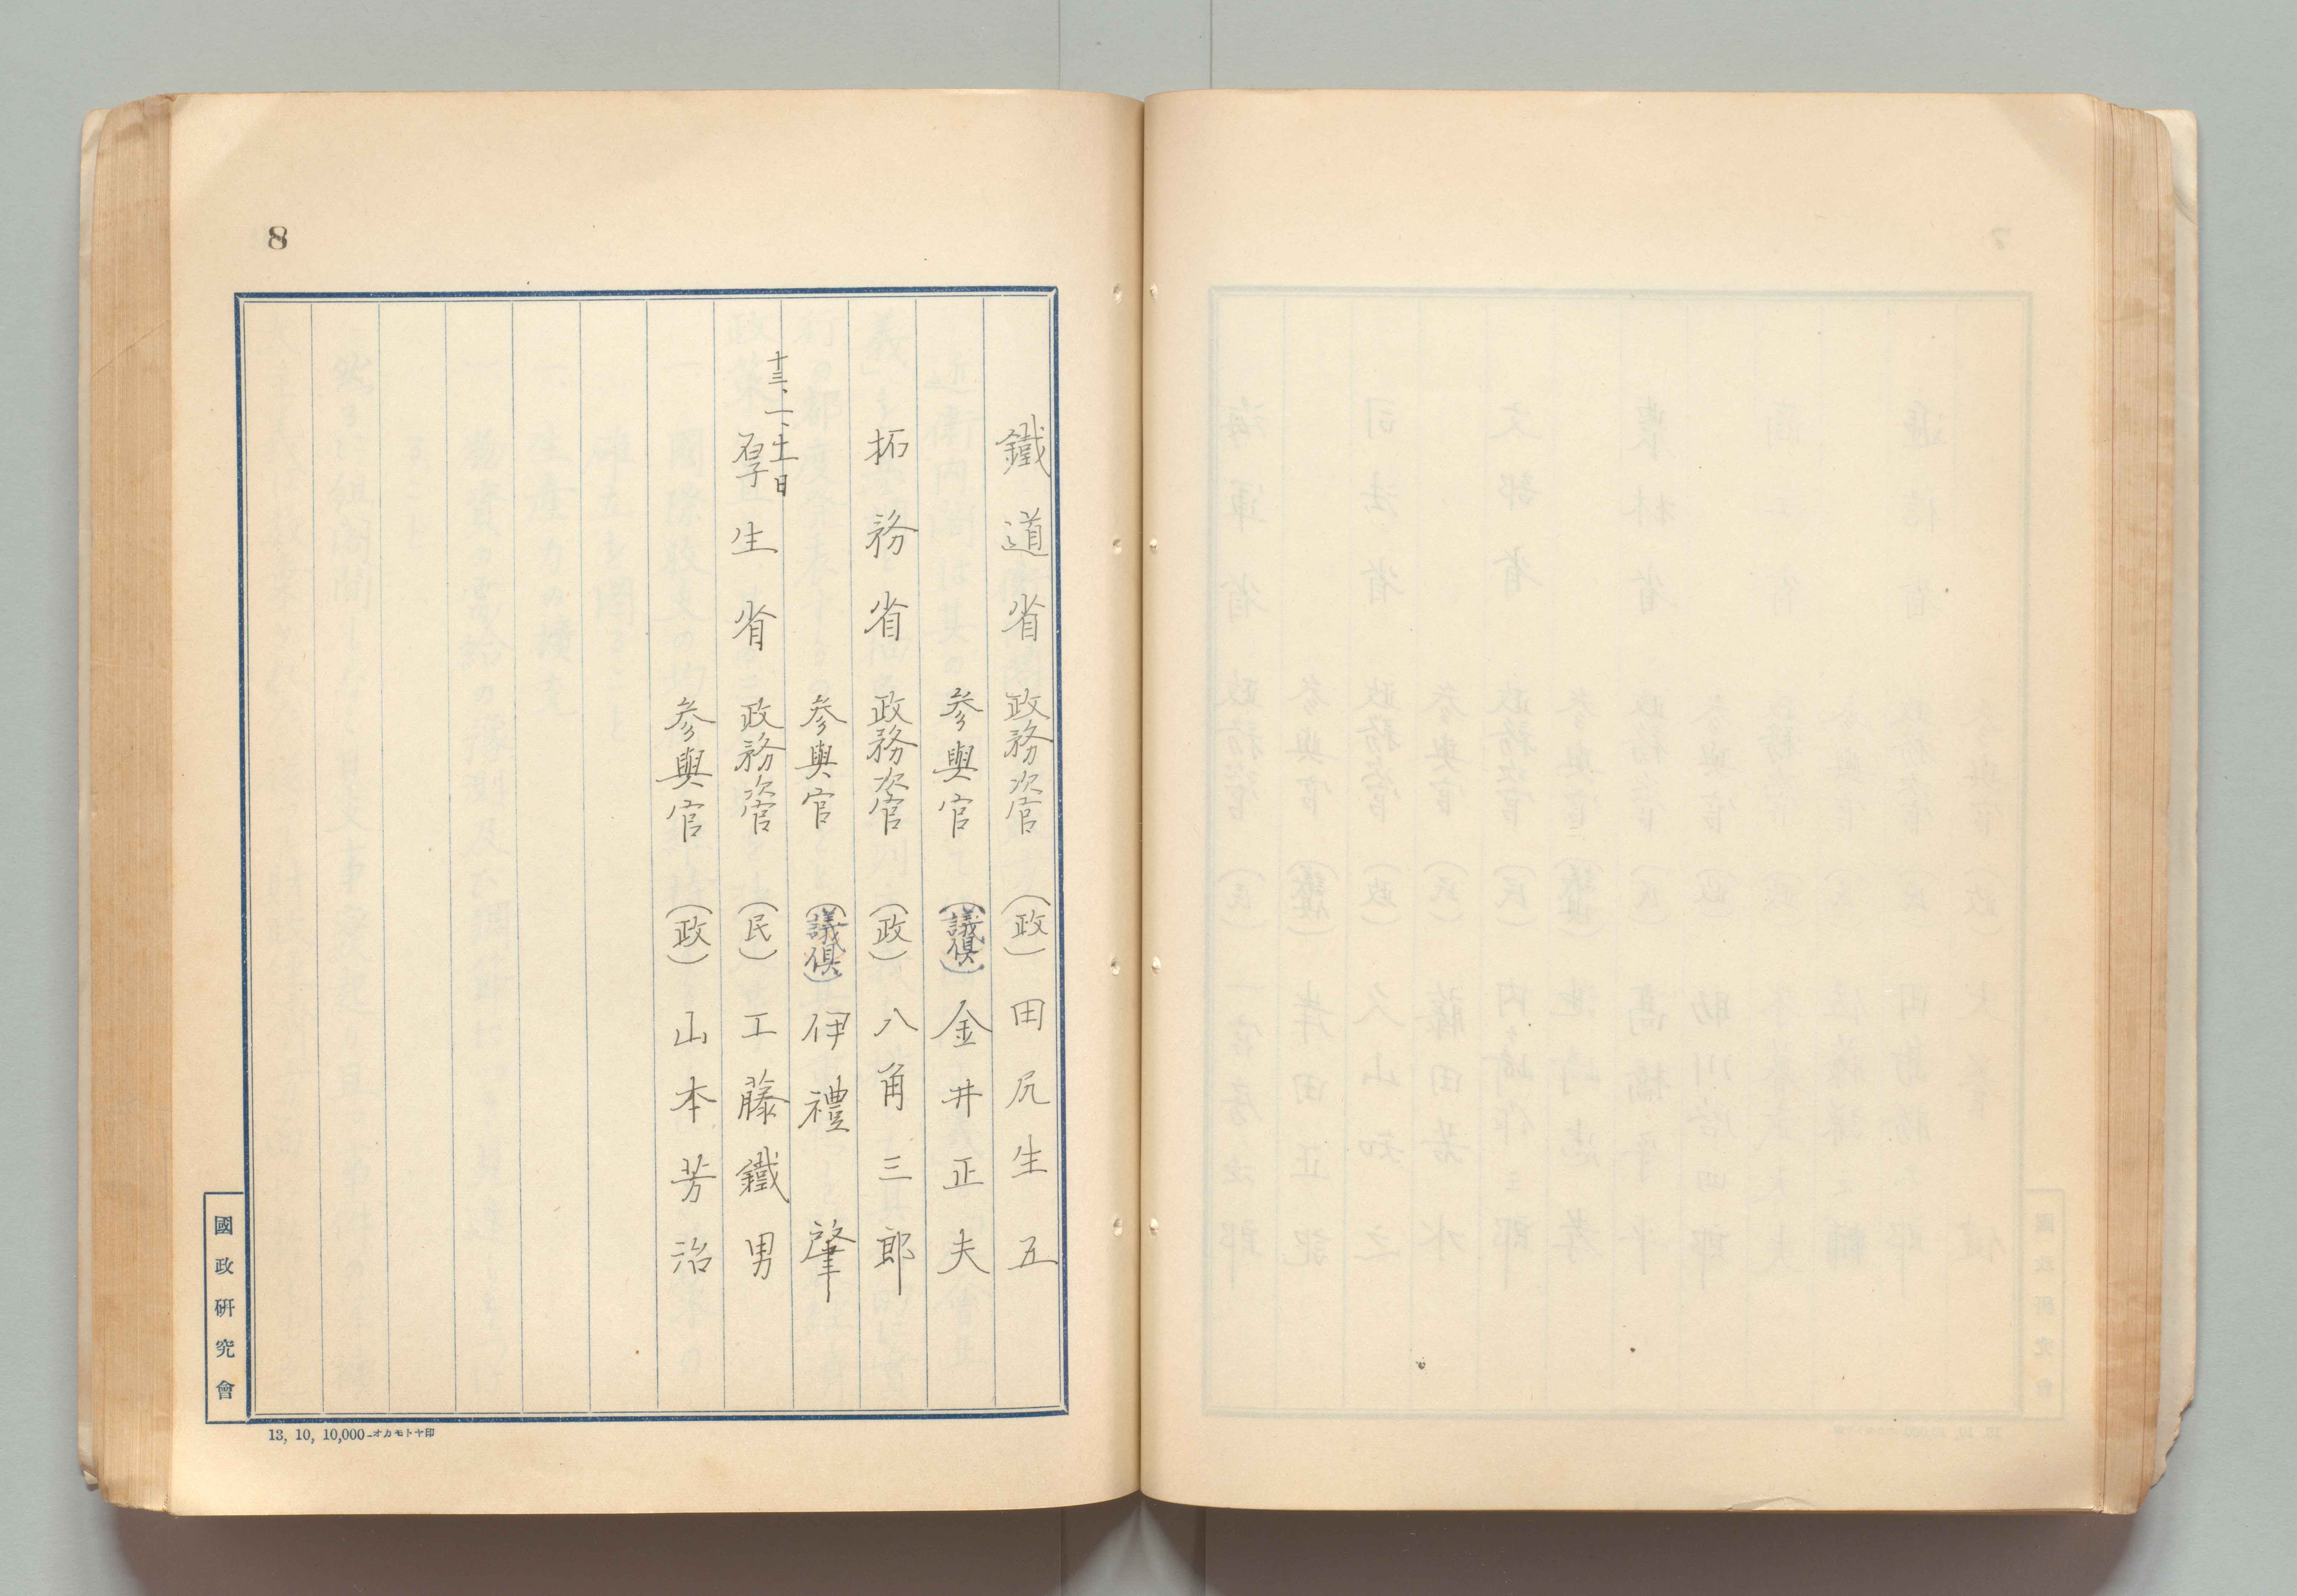 8
鐵道省 政務次官 (政) 田尻生五
参與官 (議倶) 金井正夫
拓務省 政務次官 (政) 八角三郎
参與官 (議倶) 伊禮肇
十三、一、十一日
厚生省 政務次官 (民) 工藤鐵男
参與官 (政) 山本芳治
國政研究會
13, 10, 10,000–オカモトヤ印